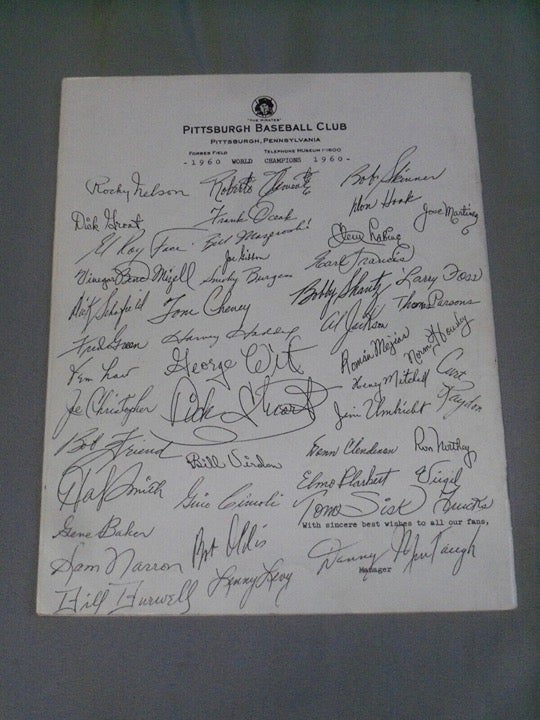 "THE PIRATES"
PITTSBURGH BASEBALL CLUB
PITTSBURGH, PENNSYLVANIA
FORBES FIELD TELEPHONE MUSEUM 1-1600
-1960 WORLD CHAMPIONS 1960-
Rocky Nelson Roberto Clemente Bob Skinner
Dick Groat Frank Oceak Don Hoak Jose Martinez
El Roy Face Bill Mazeroski Gene
Joe Gibbon Earl Francis
Vinegar Bend Mizell Smoky Burgess Bobby Shantz Larry Foss
Dick Schofield Tom Cheney Thomas Parsons
Fred Green Harvey Haddix Al Jackson
Vern Law George Witt Román Mejias Norm Housley
Joe Christopher Dick Stuart Henry Mitchell Curt Raydon
Jim Umbricht
Bob Friend Bill Virdon Donn Clendenon Ron Northey
Hal Smith Gino Cimoli Elmo Plaskett Virgil Trucks
Tom Sisk
Gene Baker Bob Oldis With sincere best wishes to all our fans,
Sam Narron Danny Murtaugh
Bill Burwell Lenny Levy Manager